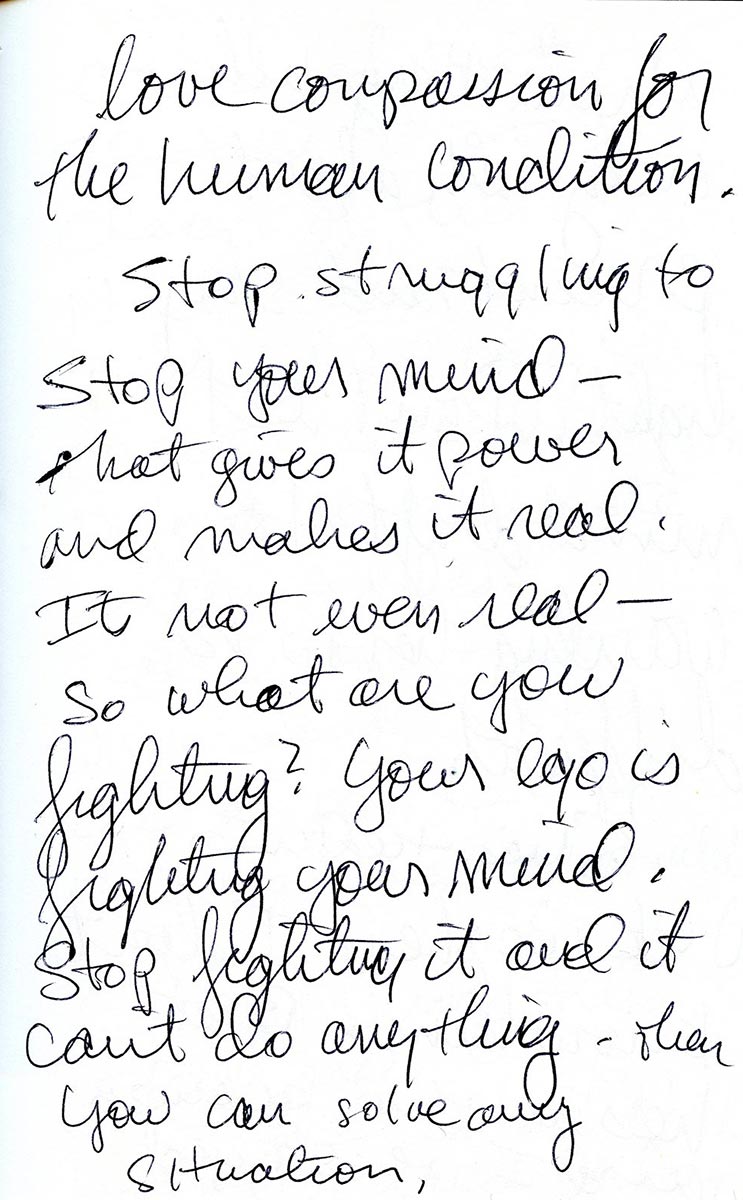 love compassion for
the human condition.
Stop struggling to
stop your mind –
that gives it power
and makes it real.
It not even real –
So what are you
fighting? Your ego is
fighting your mind.
Stop fighting it and it
can't do anything - then
you can solve any
situation,